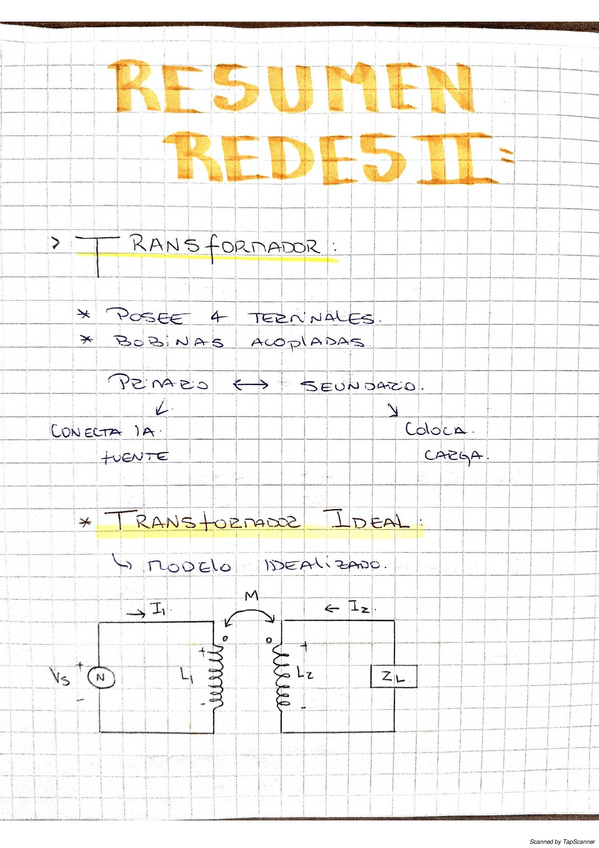 RESUMEN
REDES II:
> TRANSFORMADOR:
* POSEE 4 TERMINALES.
* BOBINAS ACOPLADAS.
PRIMARIO ↔ SEUNDARIO.
CONECTA LA COLOCA
FUENTE CARGA.
* TRANSFORMADOR IDEAL:
↳ MODELO IDEALIZADO.
M
→ I1 ← I2.
+ +
Vs + N L1 L2 ZL
- - -
Scanned by TapScanner